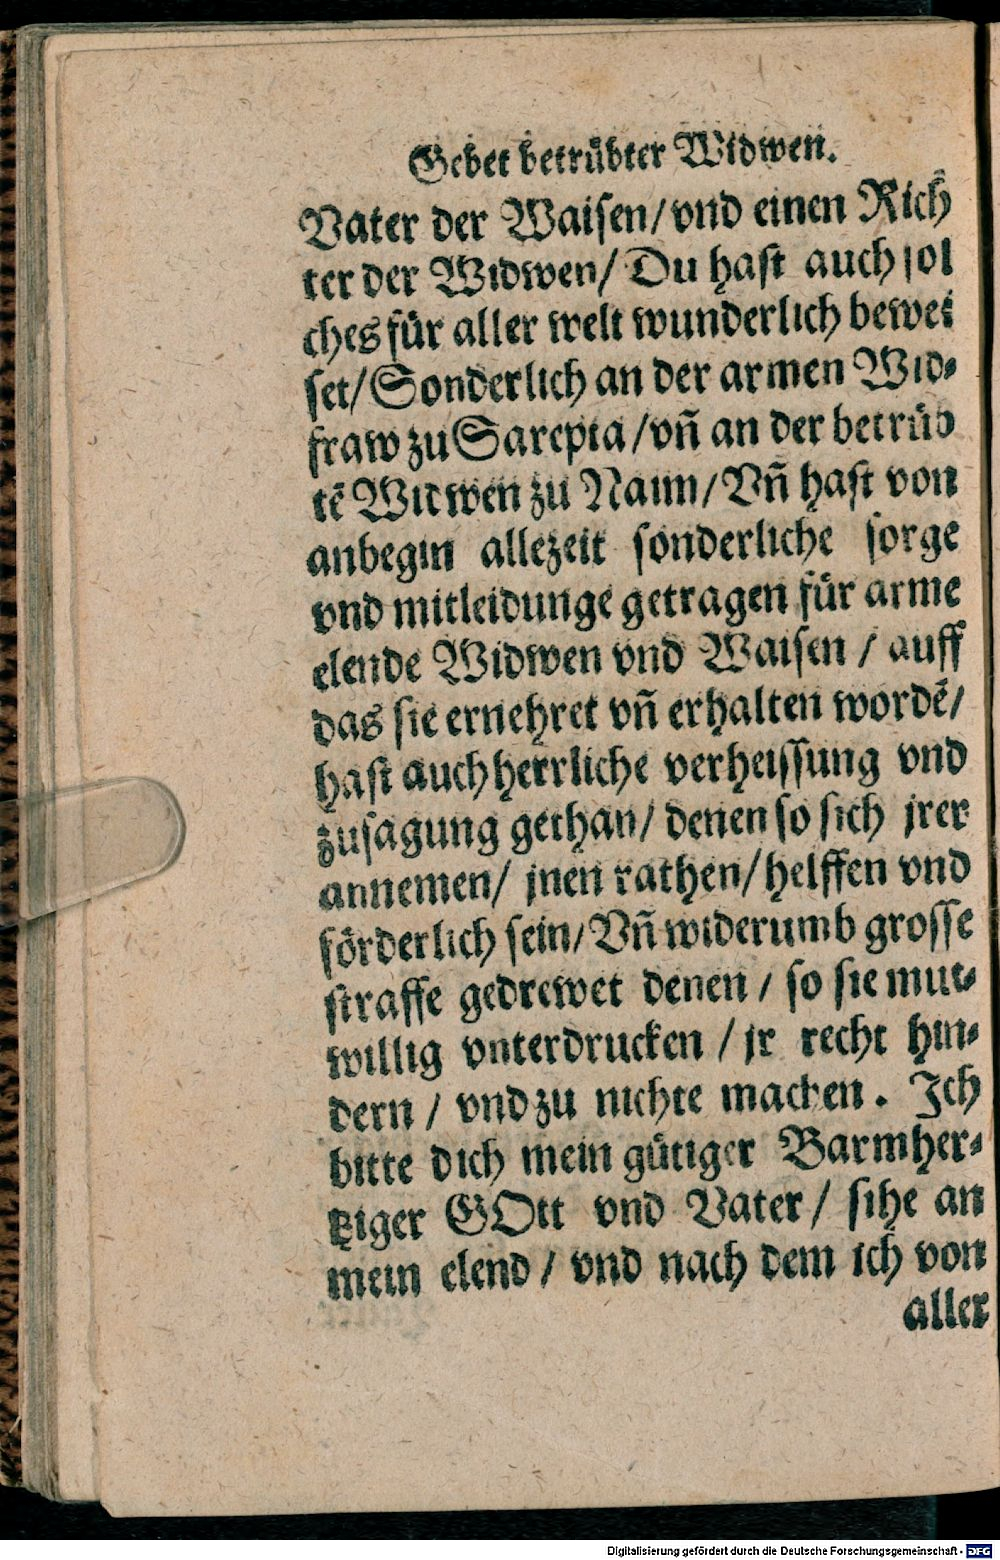 Gebet betrübter Widwen.
Vater der Waisen/ vnd einen Rich
ter der Widwen/ Du hast auch sol
ches für aller welt wunderlich bewei
set/ Sonderlich an der armen Wid⸗
fraw zu Sarepta/ vñ an der betrüb
tẽ Widwen zu Naim/ Vñ hast von
anbegin allezeit sonderliche sorge
vnd mitleidunge getragen für arme
elende Widwen vnd Waisen / auff
das sie ernehret vñ erhalten wordẽ/
hast auch herrliche verheissung vnd
zusagung gethan/ denen so sich jrer
annemen/ jnen rathen/ helffen vnd
förderlich sein/ Vñ widerumb grosse
straffe gedrewet denen / so sie mut⸗
willig vnterdrucken / jr recht hin⸗
dern / vnd zu nichte machen. Ich
bitte dich mein gütiger Barmher⸗
tziger GOtt vnd Vater / sihe an
mein elend / vnd nach dem ich von
aller
Digitalisierung gefördert durch die Deutsche Forschungsgemeinschaft - DFG